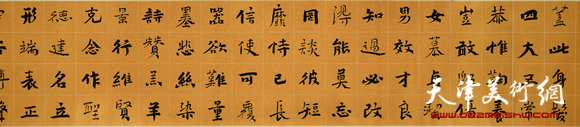 蓋此身髮
四大五常
恭惟
豈敢
女慕貞潔
男效才良
知過必改
得能莫忘
罔談彼短
靡恃己長
信使可覆
器欲難量
墨悲絲染
詩讚羔羊
景行維賢
克念作聖
德建名立
形端表正
天津美術網